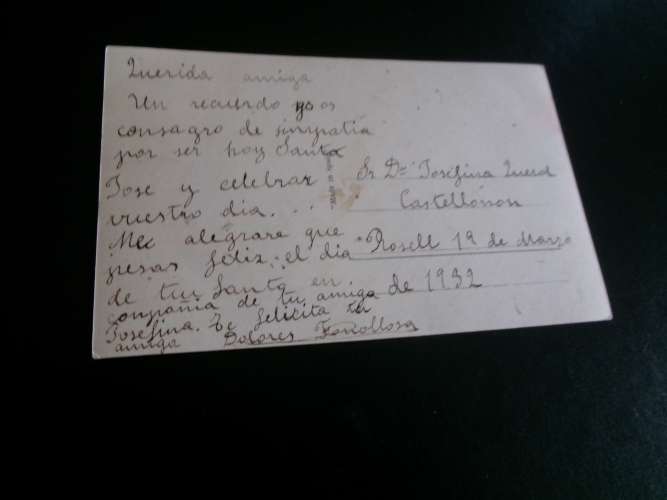 Querida amiga
Un recuerdo yo os
consagro de simpatia
por ser hoy Santa
Jose y celebrar
vuestro dia...
Me alegrare que
pesas feliz el dia
de tu Santa en
compañia de tu amiga
Josefina. Te felicita tu
amiga Dolores
Sr Dª Josefina Querol
Rosell 1ª de Marzo
de 1932